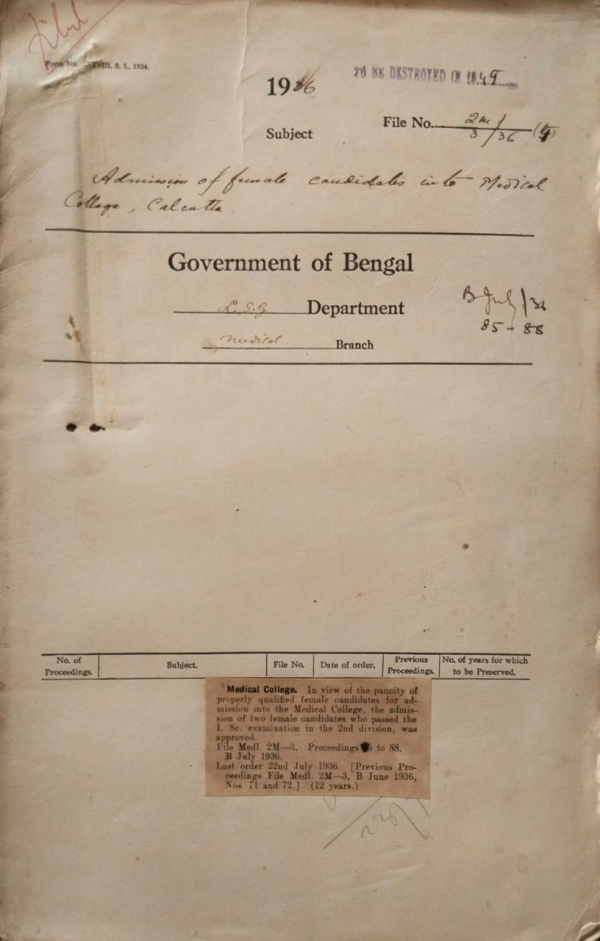 Filed
Form No. XVIII, S. L., 1934.
1936
TO BE DESTROYED IN 1949
File No. 2M/3/36 (4)
Subject
Admission of female candidates into Medical
College, Calcutta.
Government of Bengal
L.S.G Department
Medical Branch
B July/36
85-88
No. of Proceedings. Subject. File No. Date of order. Previous Proceedings. No. of years for which to be Preserved.
Medical College. In view of the paucity of
properly qualified female candidates for ad-
mission into the Medical College, the admis-
sion of two female candidates who passed the
I. Sc. examination in the 2nd division, was
approved.
File Medl. 2M—3. Proceedings to 88.
B July 1936.
Last order 22nd July 1936. [Previous Pro-
ceedings File Medl. 2M—3, B June 1936,
Nos. 71 and 72.] (12 years.)